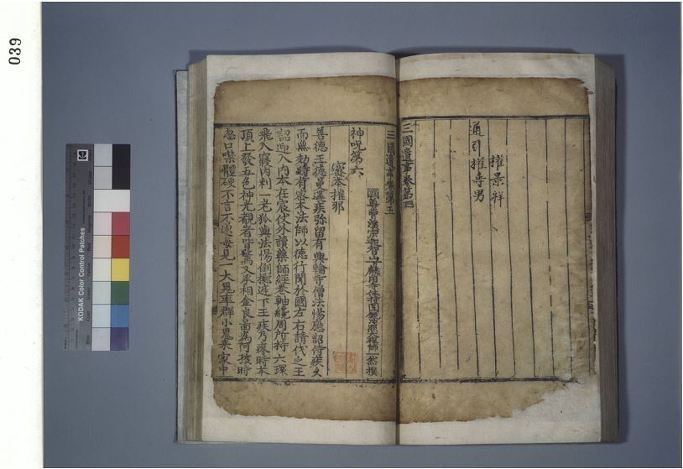 039
KODAK Color Control Patches
權景祥
通引權壽男
三國遺事卷第四
三國遺事卷第五
國尊曹溪宗迦智山下麟角寺住持圓鏡冲照大禪師一然撰
神呪第六
密本摧邪
善德王德曼遘疾弥留有興輪寺僧法惕應詔侍疾久
而無効時有密本法師以德行聞於國左右請代之王
詔迎入內本在宸仗外讀藥師經卷軸纔周所持六環
飛入寢內刺一老狐與法惕倒擲庭下王疾乃瘳時本
頂上發五色神光覩者皆驚又承相金良圖為阿孩時
忽口噤體硬不言不遂每見一大鬼率群小鬼來家中